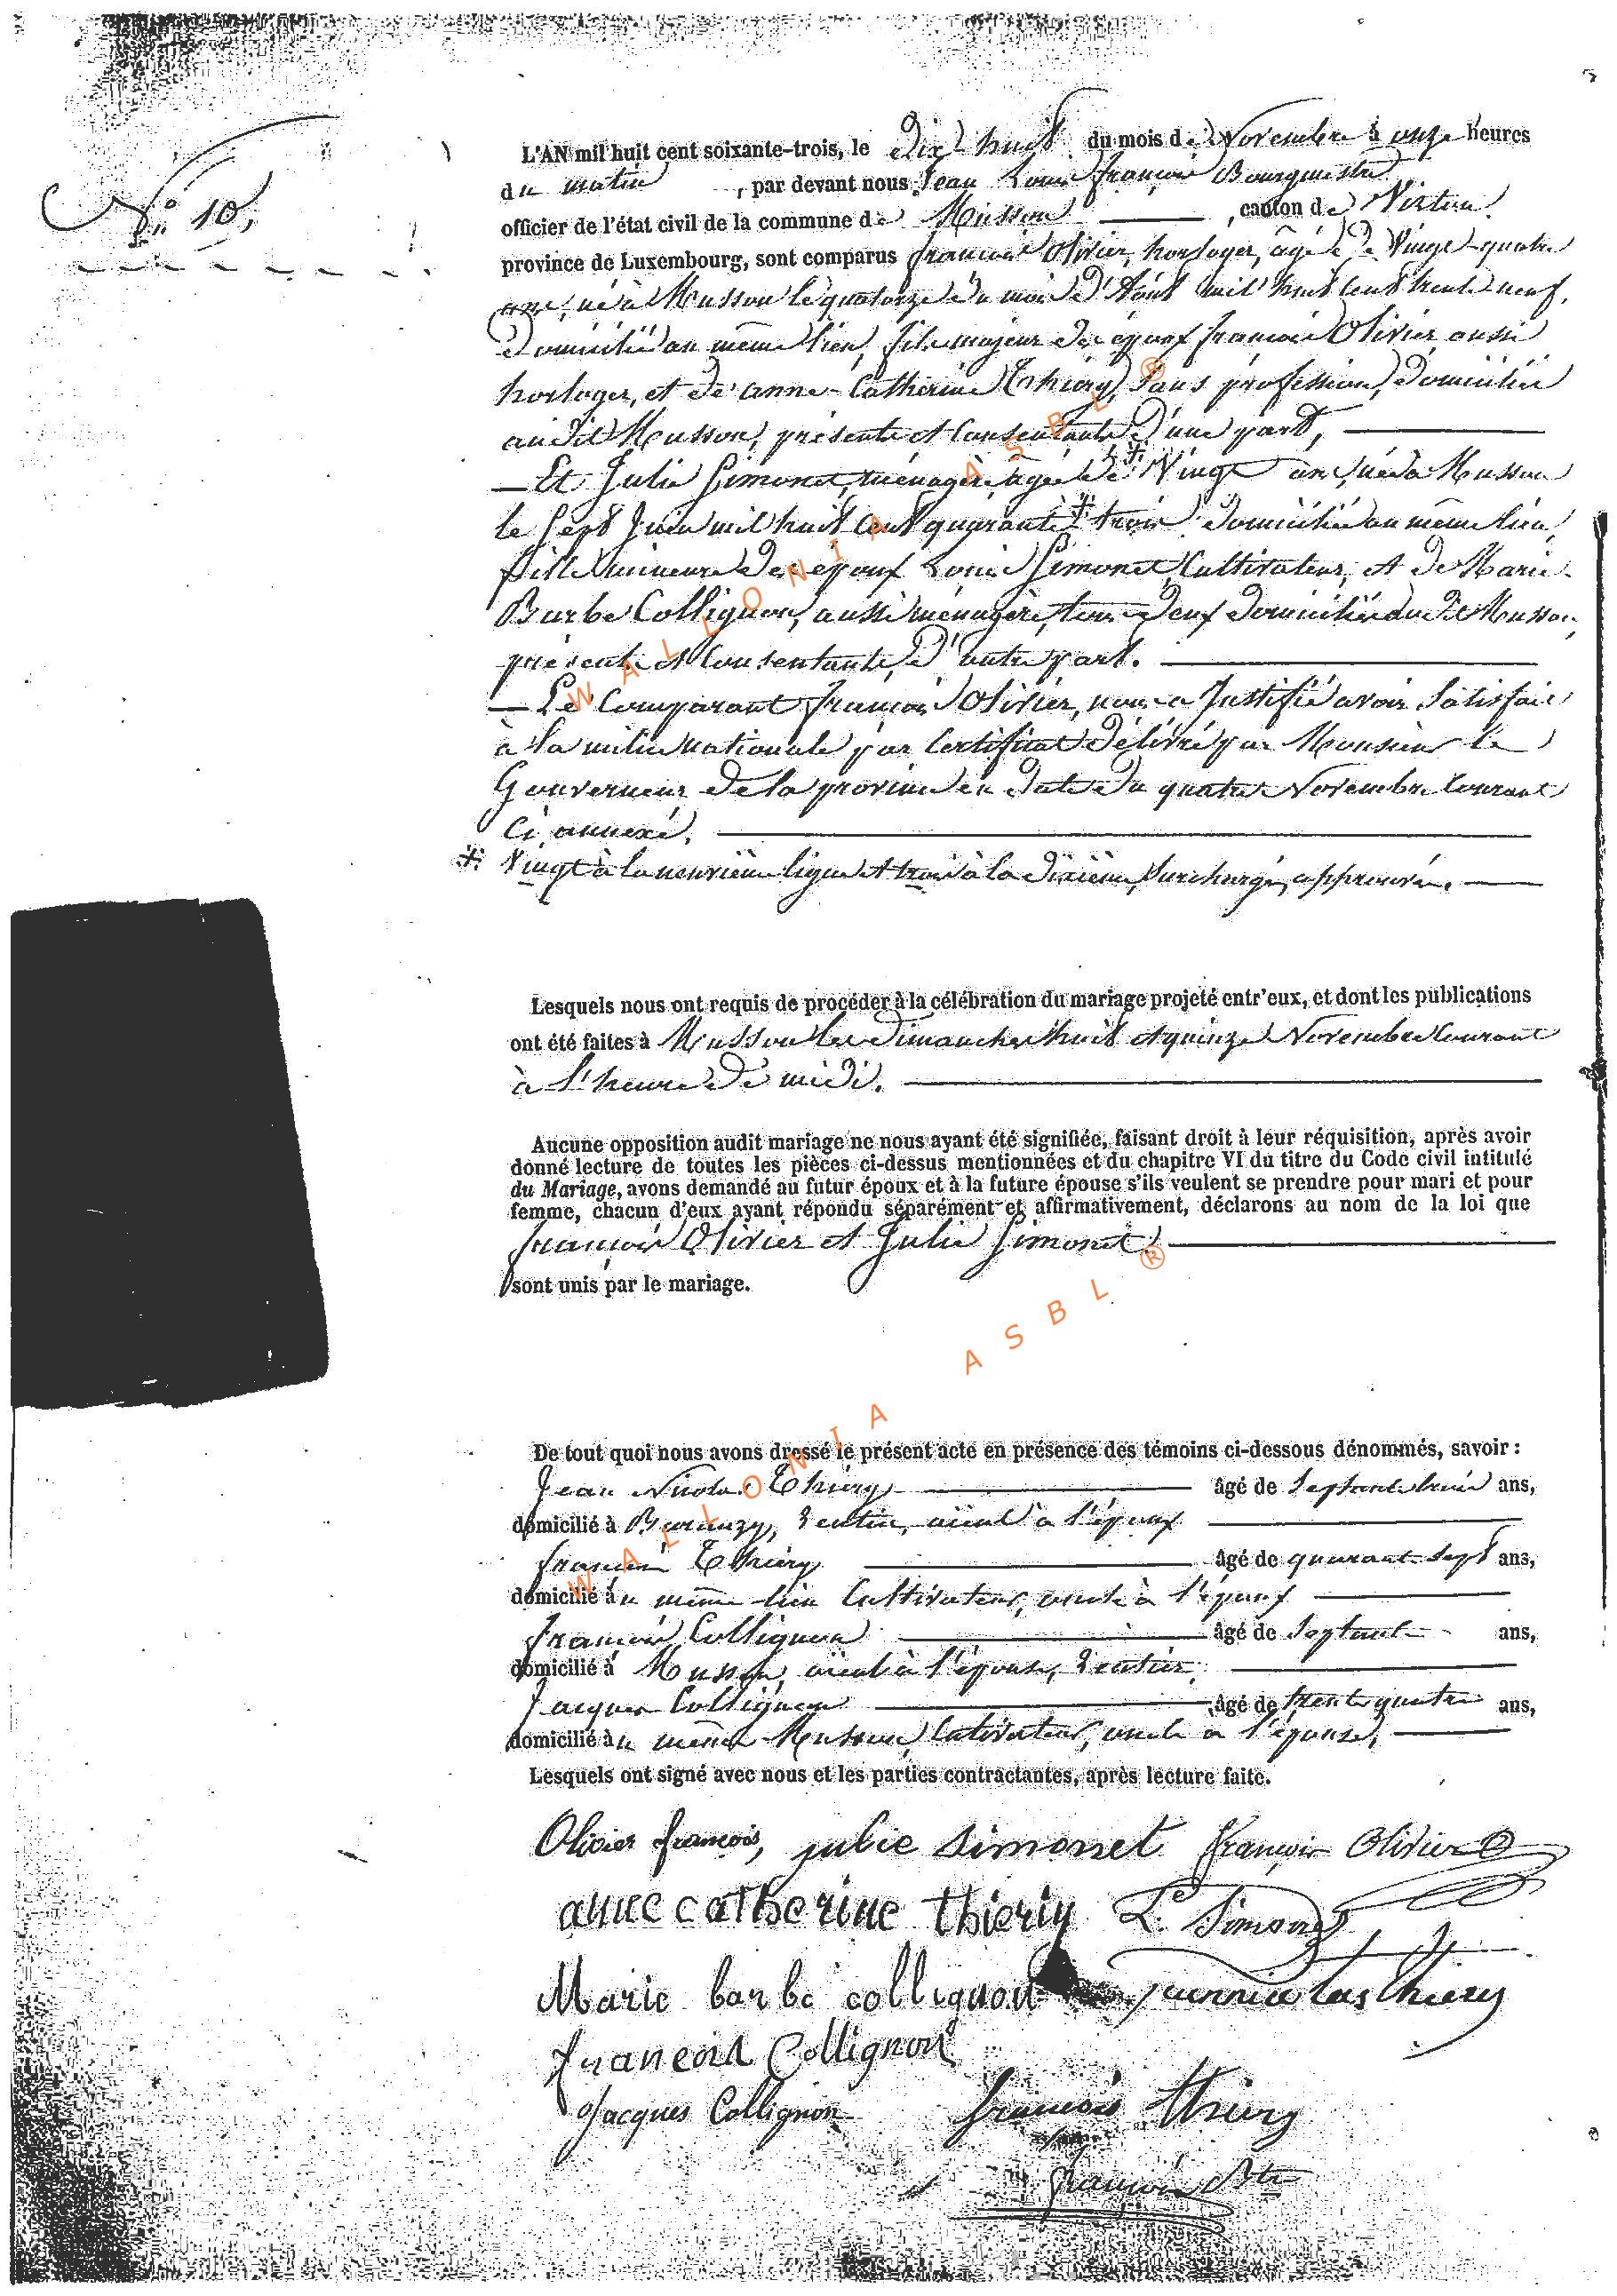 N° 10,
L'AN mil huit cent soixante-trois, le Dix-huit du mois de Novembre à onze heures
du matin, par devant nous Jean Louis François Bourguestre
officier de l'état civil de la commune de Musson, canton de Virton.
province de Luxembourg, sont comparus françois Olivier, horloger, âgé de Vingt-quatre
ans, né à Musson le quatorze du mois d'Août mil huit cent trente neuf,
domicilié au même lieu, fils majeur des époux françois Olivier aussi
horloger, et de anne-Catherine Thiery, sans profession, domiciliés
au dit Musson, présents et consentants, d'une part,
Et Julie Simonet, ménagère, âgée de * Vingt ans, née à Musson
le sept Juin mil huit cent quarante * trois, domiciliée au même lieu,
fille mineure des époux Louis Simonet, Cultivateur, et de Marie-
Barbe Collignon, aussi ménagère, tous deux domiciliés au dit Musson,
présents et consentants, d'autre part.
Le Comparant françois Olivier, nous a Justifié avoir Satisfait
à la milice nationale par Certificat délivré par Monsieur le
Gouverneur de la province en date du quatre Novembre courant
ci annexé.
* Vingt à la neuvième ligne et trois à la dixième, surchargés, approuvés.
Lesquels nous ont requis de procéder à la célébration du mariage projeté entr'eux, et dont les publications
ont été faites à Musson les dimanches huit et quinze Novembre Courant
à l'heure de midi.
Aucune opposition audit mariage ne nous ayant été signifiée, faisant droit à leur réquisition, après avoir
donné lecture de toutes les pièces ci-dessus mentionnées et du chapitre VI du titre du Code civil intitulé
du Mariage, avons demandé au futur époux et à la future épouse s'ils veulent se prendre pour mari et pour
femme, chacun d'eux ayant répondu séparément et affirmativement, déclarons au nom de la loi que
françois Olivier et Julie Simonet
sont unis par le mariage.
De tout quoi nous avons dressé le présent acte en présence des témoins ci-dessous dénommés, savoir :
Jean Nicolas Thiery âgé de Septante trois ans,
domicilié à Baranzy, Rentier, aïeul à l'époux
françois Thiery âgé de quarante-sept ans,
domicilié au même lieu Cultivateur, oncle à l'époux
françois Collignon âgé de Septante ans,
domicilié à Musson, aïeul à l'épouse, Rentier
Jacques Collignon âgé de trente quatre ans,
domicilié au même Musson, Cultivateur, oncle à l'épouse,
Lesquels ont signé avec nous et les parties contractantes, après lecture faite.
Olivier françois, julie simonet françois Olivier
anne catherine thieriy L. Simonet
Marie barbe collignon jean nicolas thiery
francois Collignon
Jacques Collignon francois thiery
françois Btre
WALLONIA ASBL ®
WALLONIA ASBL ®